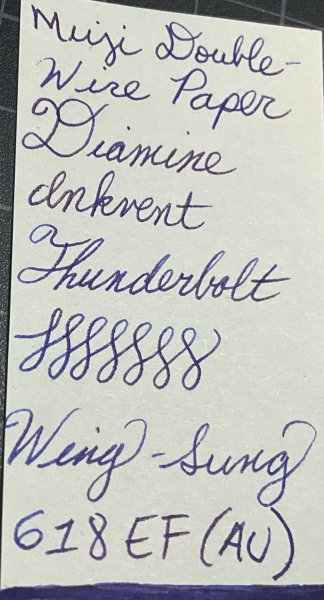 Muji Double-
Wire Paper
Diamine
Inkvent
Thunderbolt
Wing-Sung
618 EF (AU)